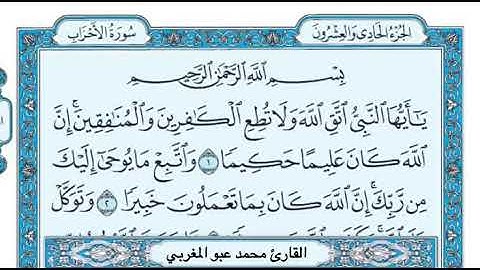 الجزء الحادي والعشرون
سورة الأحزاب
بِسْمِ اللَّهِ الرَّحْمَٰنِ الرَّحِيمِ
يَا أَيُّهَا النَّبِيُّ اتَّقِ اللَّهَ وَلَا تُطِعِ الْكَافِرِينَ وَالْمُنَافِقِينَ إِنَّ
اللَّهَ كَانَ عَلِيمًا حَكِيمًا ١ وَاتَّبِعْ مَا يُوحَىٰ إِلَيْكَ
مِن رَّبِّكَ إِنَّ اللَّهَ كَانَ بِمَا تَعْمَلُونَ خَبِيرًا ٢ وَتَوَكَّلْ
القارئ محمد عبو المغربي